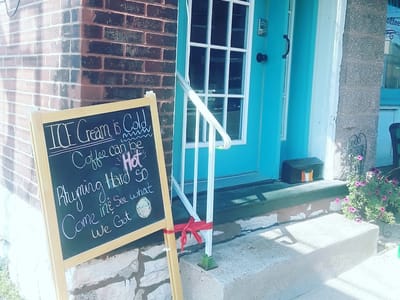 ICE Cream is Cold
Coffee can be
Hot
Rhyming Hard So
Come in & See what
We Got